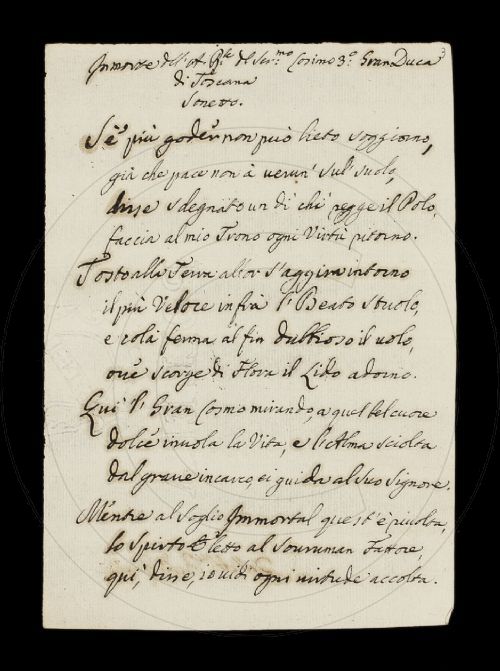 In morte dell'A. R.le del Ser.mo Cosimo 3.o Gran Duca
di Toscana
Sonetto.
Se più goder non può lieto soggiorno,
già che pace non à verun' sul' suolo,
disse sdegnato un dì chi regge il Polo,
faccia al mio Trono ogni Virtù ritorno.
Tosto alla Terra allor s'aggira intorno
il più Veloce infrà l'Beato stuolo,
e colà ferma al fin dubbioso il uolo,
oue scorge di Flora il Lido adorno.
Qui l' Gran Cosmo mirando, a quel bel cuore
dolce inuola la Vita, e l'Alma sciolta
dal graue incarco, ei guida al suo Signore.
Mentre al soglio Immortal quest' è riuolta,
lo spirto eletto al souruman Fattore,
qui, disse, io uidi ogni uirtude accolta.